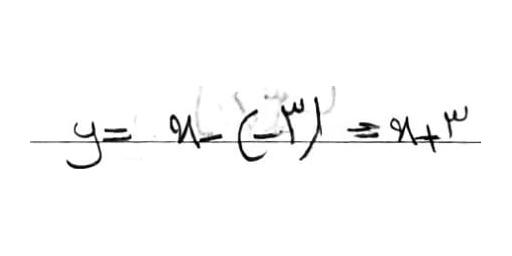 y = x - (-۳) = x + ۳